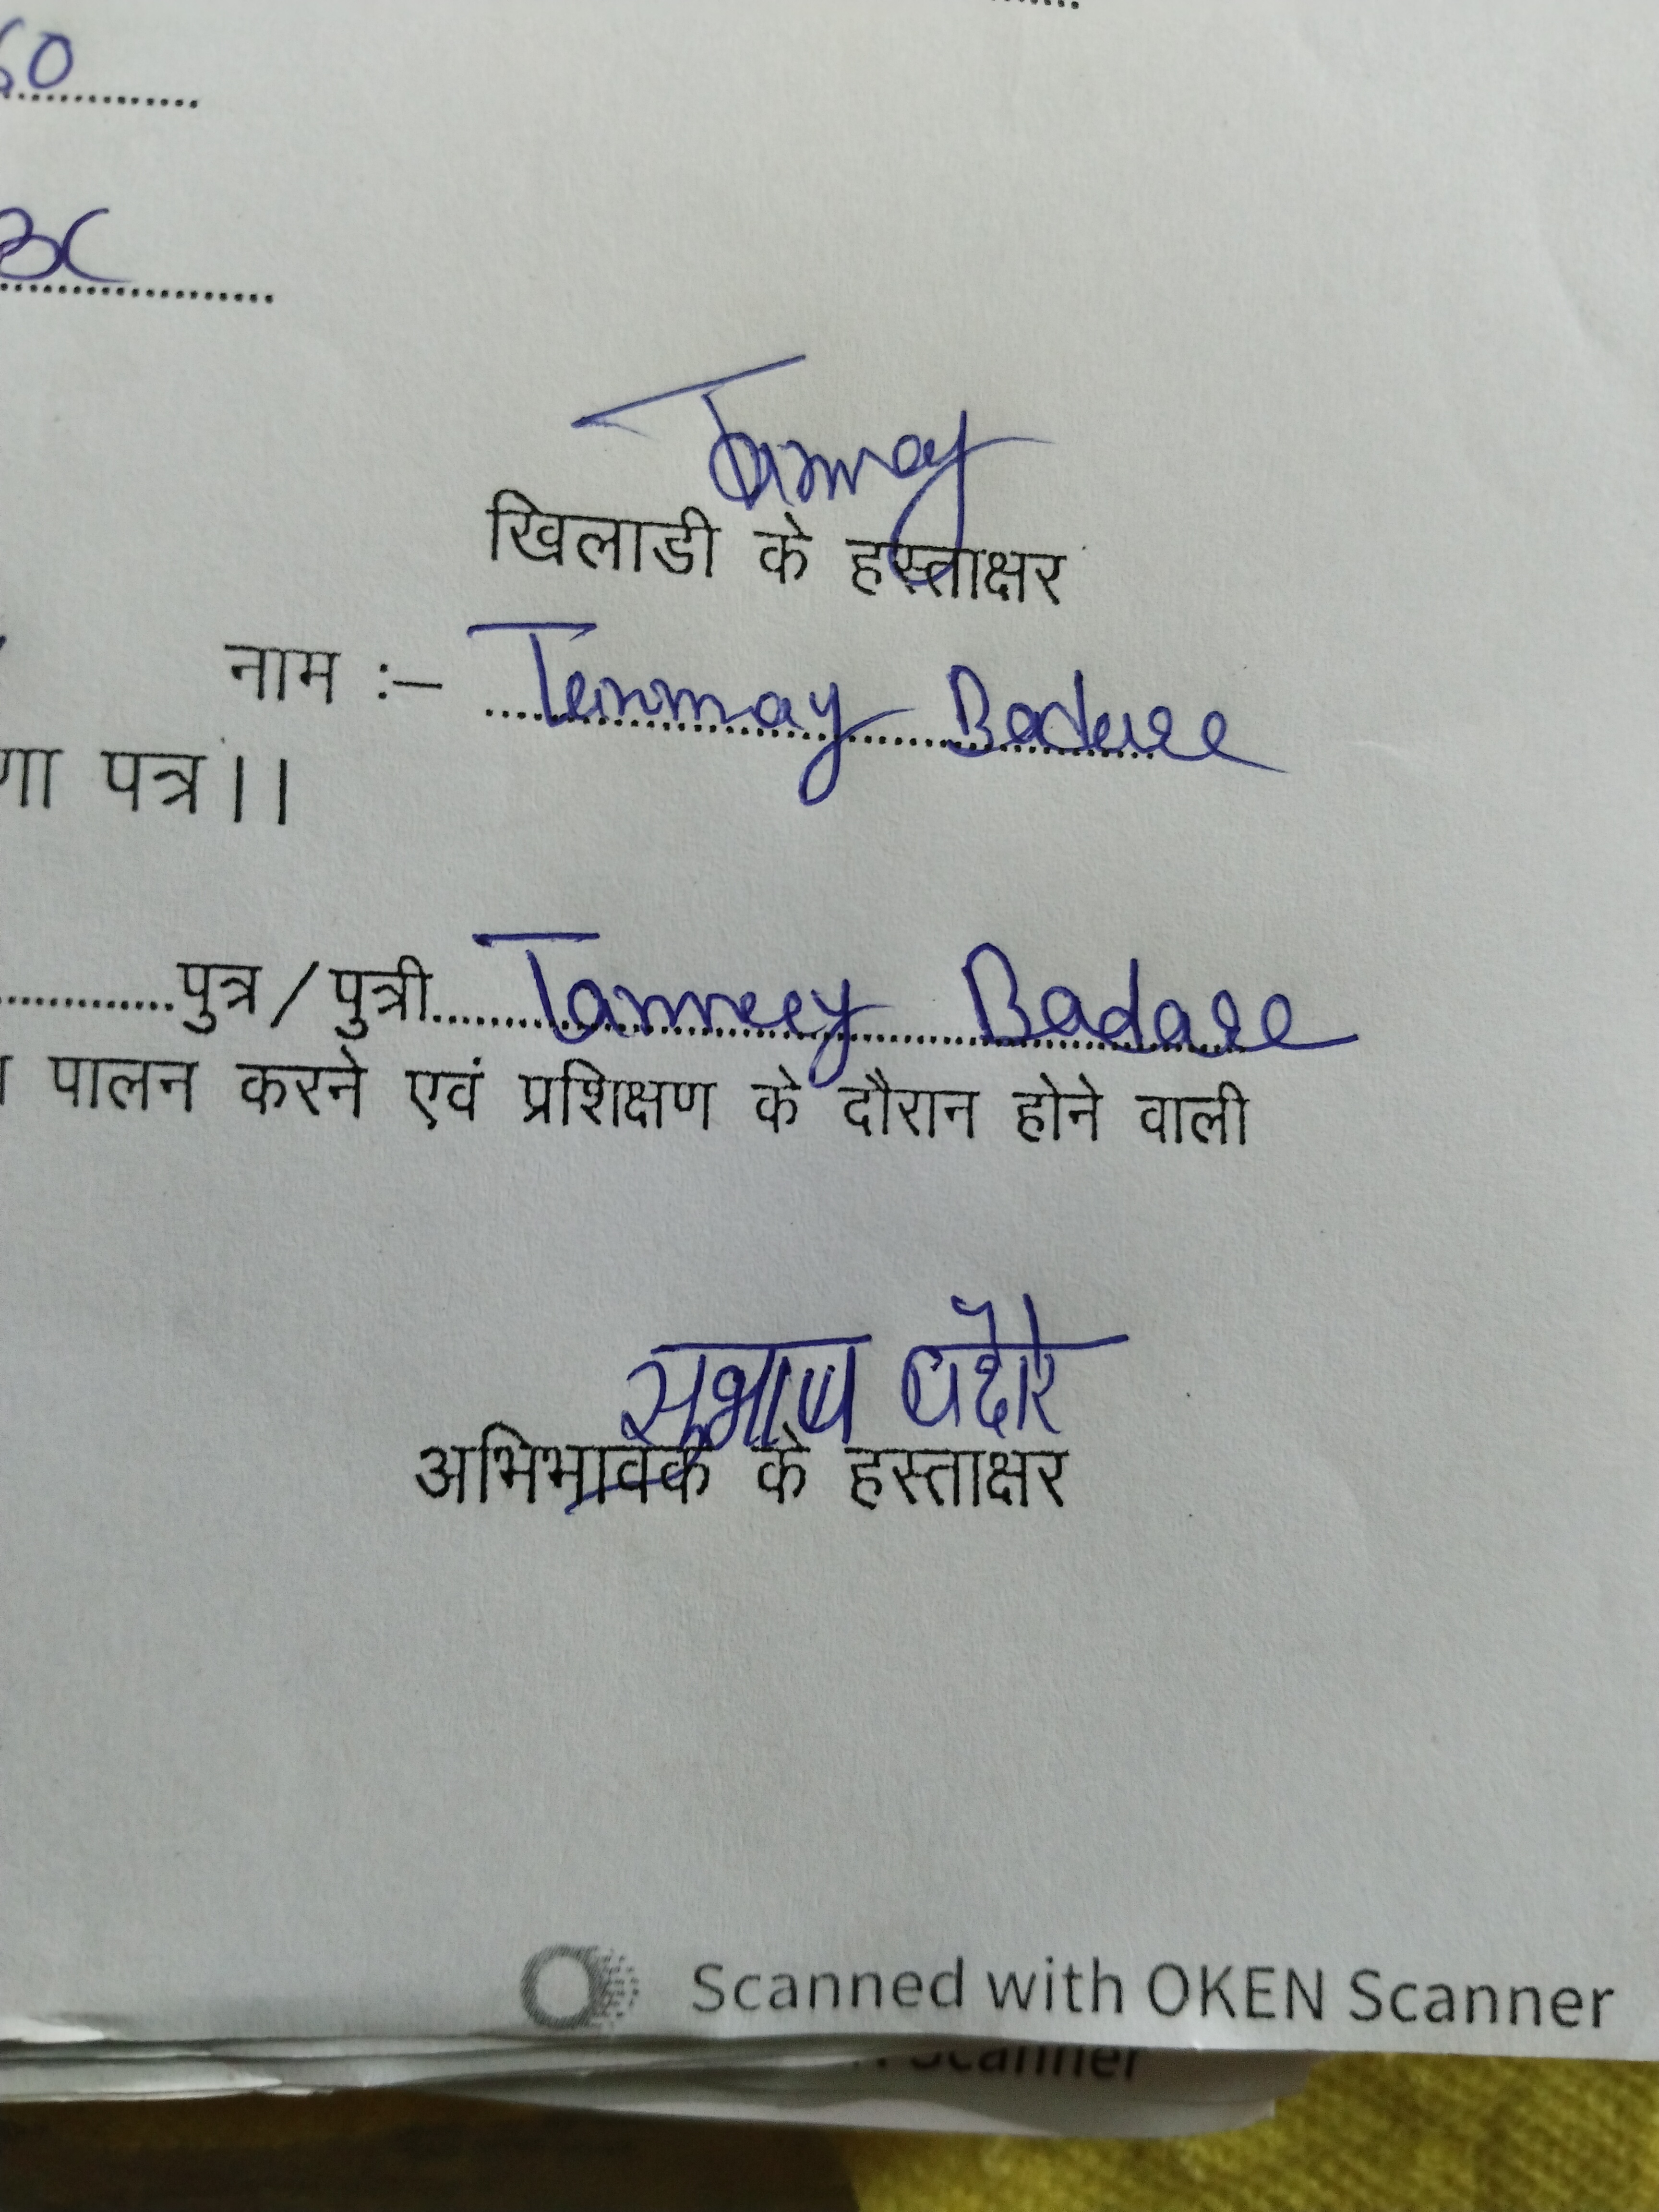 60
BC
Tanmay
खिलाडी के हस्ताक्षर
नाम :- Tanmay Badare
णा पत्र।।
पुत्र/पुत्री Tanmay Badare
पालन करने एवं प्रशिक्षण के दौरान होने वाली
सुभाष बदारे
अभिभावक के हस्ताक्षर
Scanned with OKEN Scanner
Scanner